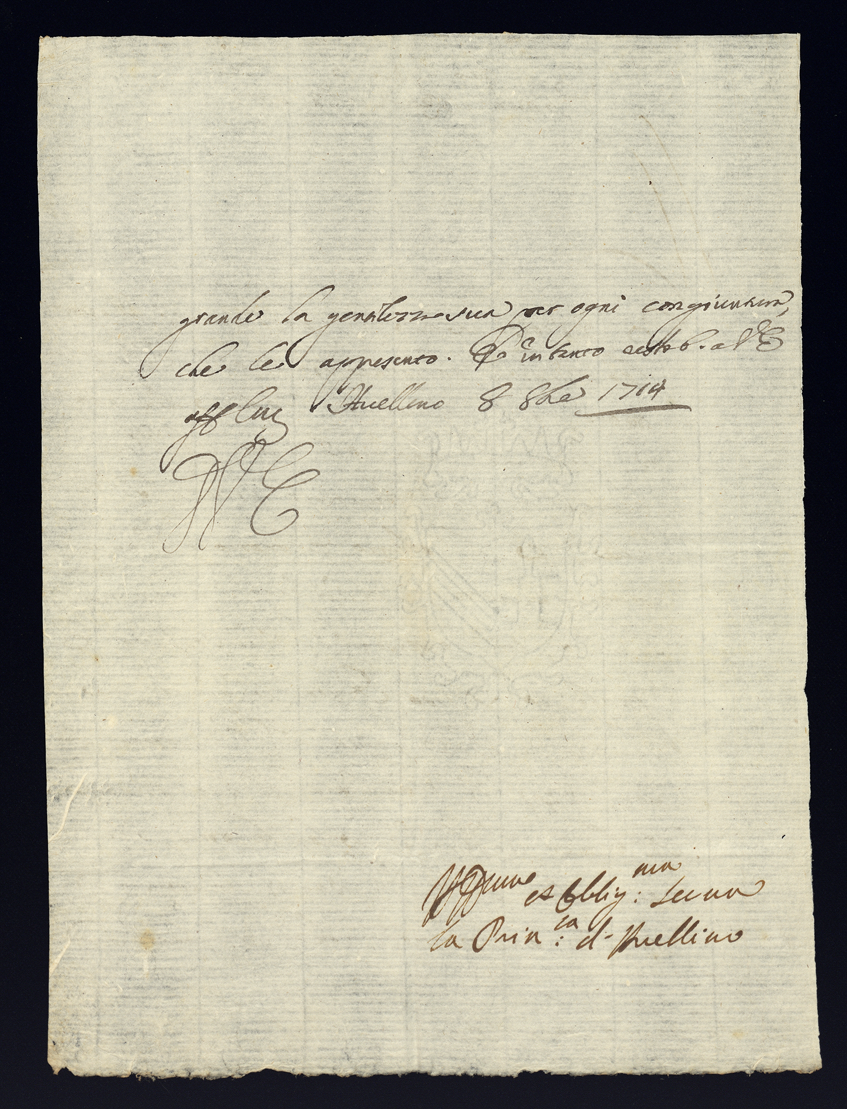 grande la gentilezza sua per ogni congiuntura,
che le appresento. E intanto resto b. a V E
aff Avellino 8 8bre 1714
V E
Affma et Obblig:ma Serva
la Prin:sa d'Avellino